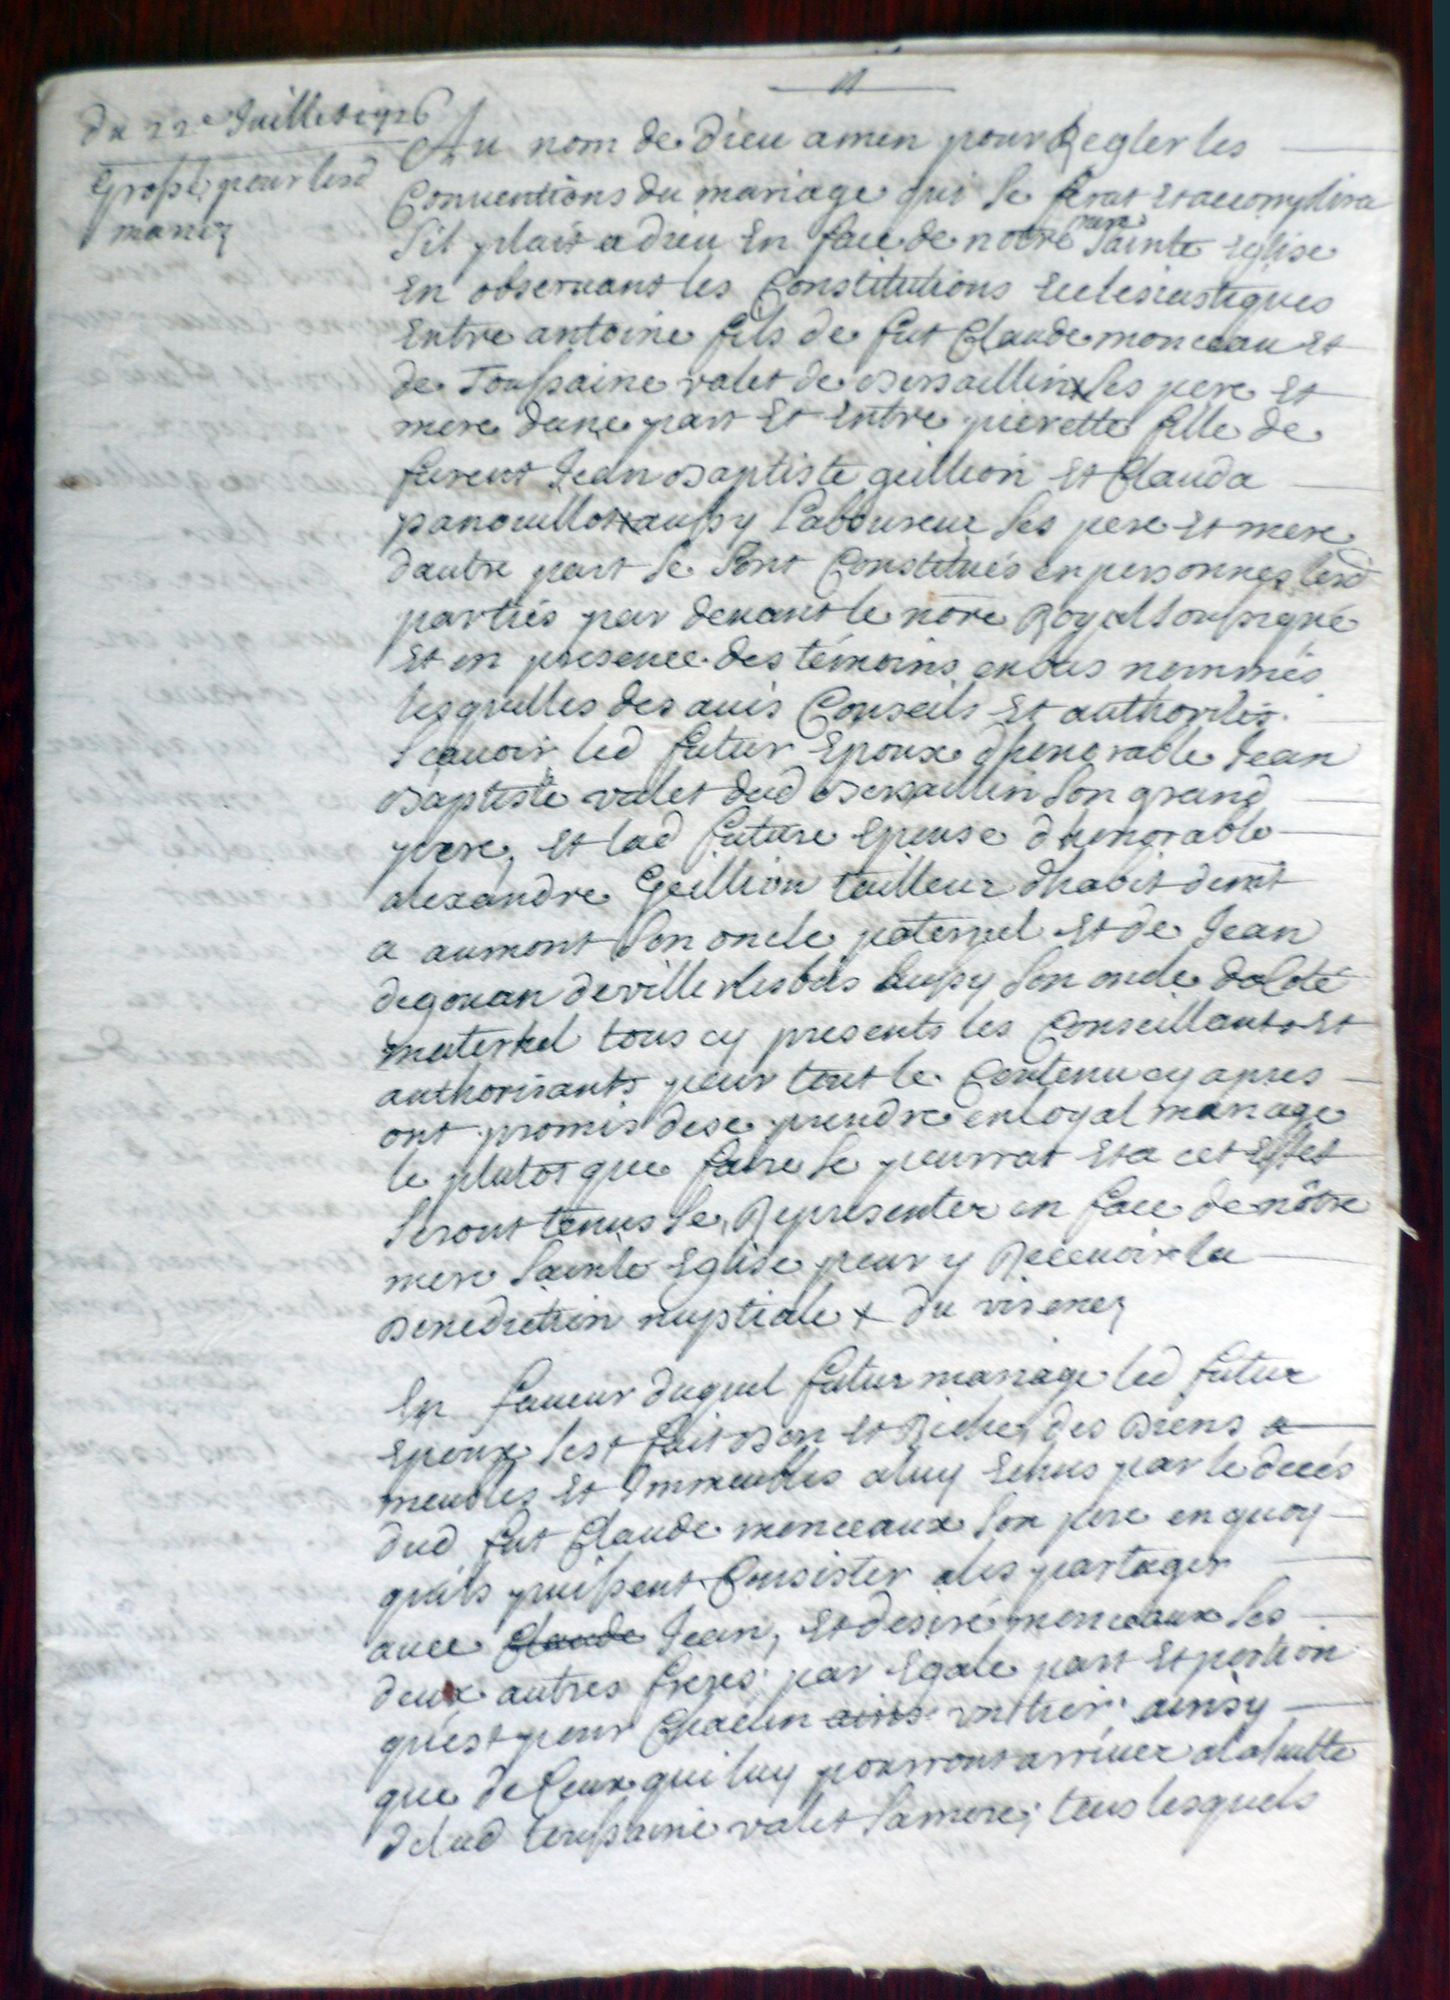 du 22e Juillet 1726
Grossé pour lesd
mariez
Au nom de dieu amen pour Regler les
Conventions du mariage qui se ferat et accomplira
S'il plait a dieu En face de notre mere Sainte Eglise
En observant les Constitutions Ecclesiastiques
Entre antoine fils de fut Claude monceau Et
de Toussaine valet de Bersaillin ses pere Et
mere dune part Et Entre pierette fille de
furent Jean Baptiste geillion Et Clauda
panouillot aussy Laboureur ses pere Et mere
dautre part se sont Constitués en personnes lesd
parties par devant le nore Royal soussigné
Et en presence des témoins en bas nommés
lesquelles des avis Conseils Et authorités
Scavoir led futur Epoux dhonorable Jean
Baptiste valet dud Bersaillin son grand
pere, Et lad future Epouse dhonorable
alexandre Geillion tailleur dhabit demt
a aumont son oncle paternel Et de Jean
degouan de villerslesbois aussy son oncle du Coté
maternel tous cy presents les Conseillants Et
authorisants pour tout le Contenu cy apres
ont promis de se prendre en loyal mariage
le plutot que faire se pourrat Et a cet Effet
Seront tenus se Representer en face de nôtre
mere Sainte Eglise pour y Recevoir la
Benediction nuptiale
En faveur duquel futur mariage led futur
Epoux sest fait bon Et Riche des Biens
meubles Et Immeubles a luy Echus par le decés
dud fut Claude monceaux son pere en quoy
quils puissent Consister a les partager
avec Claude Jean, Et desiré monceaux ses
deux autres freres par Egale part Et portion
quest pour Chacun un tier ainsy
que de Ceux qui luy pourront arriver a la suitte
de lad toussaine valet sa mere; tous lesquels